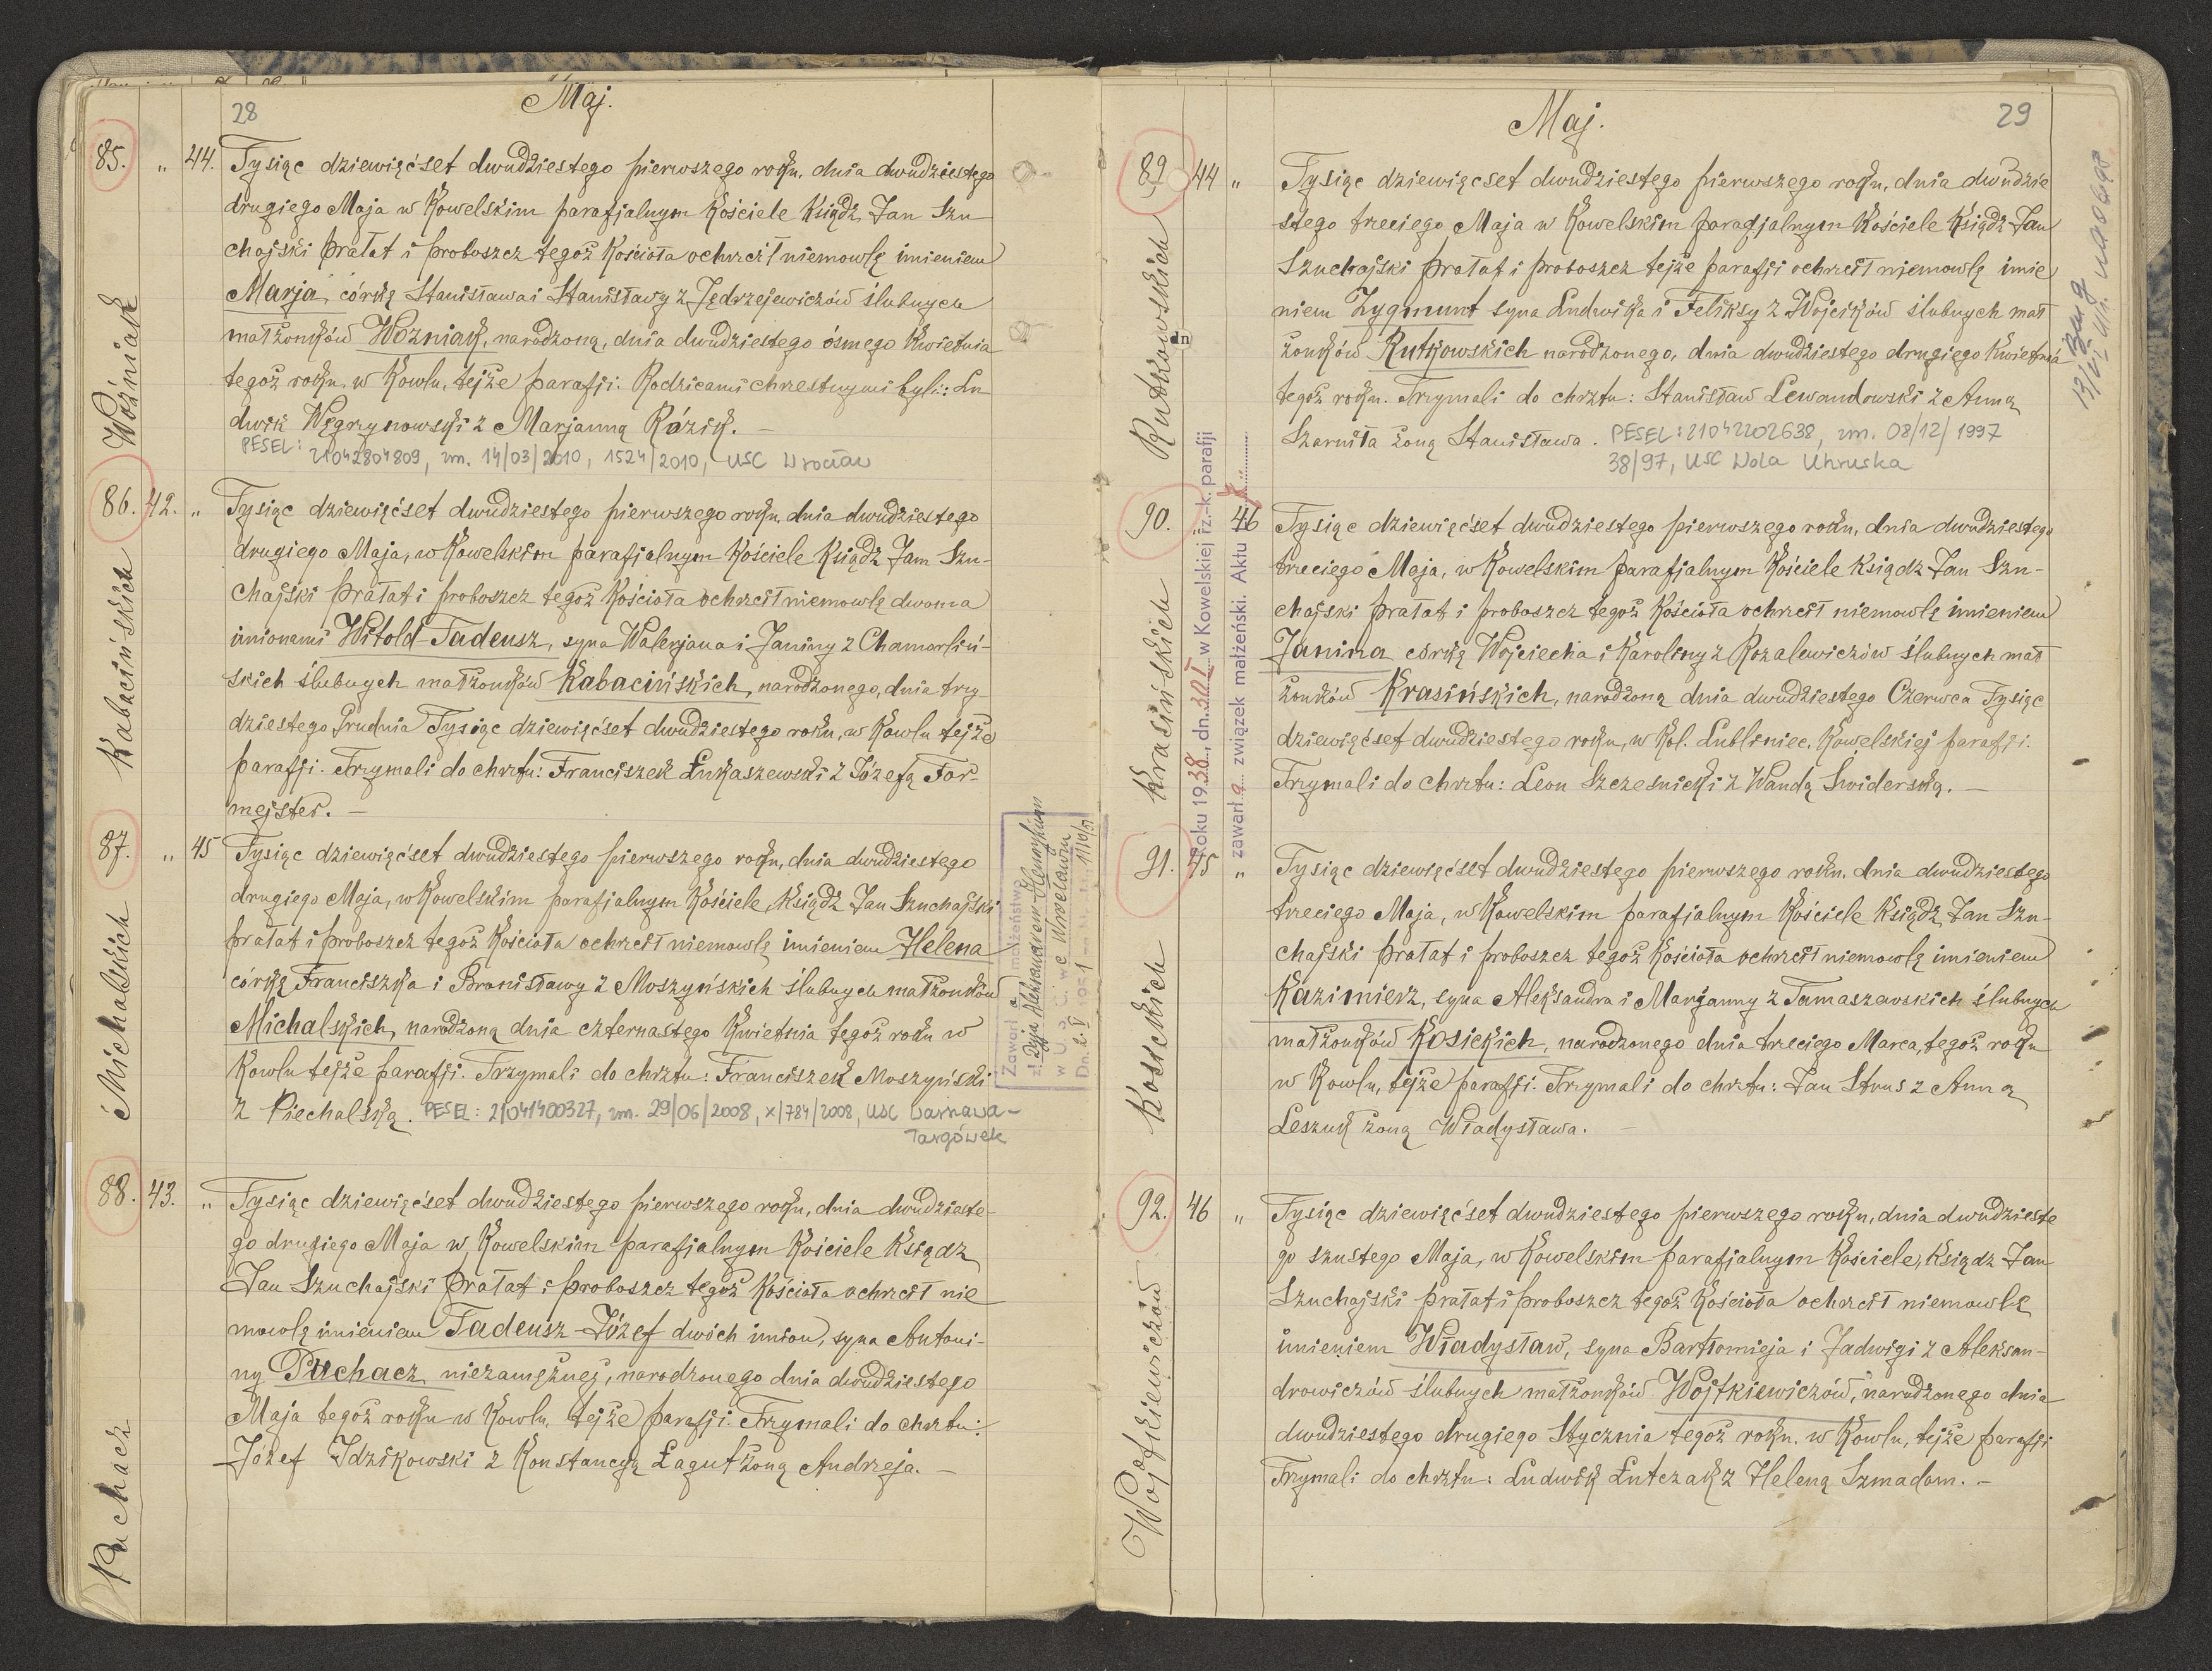 28
Maj.
85. „ 44.
Woźniak
Tysiąc dziewięćset dwudziestego pierwszego roku, dnia dwudziestego
drugiego Maja w Kowelskim parafjalnym Kościele Ksiądz Jan Szu
chajski Prałat i proboszcz tegoż Kościoła ochrzcił niemowlę imieniem
Marja, córkę Stanisława i Stanisławy z Jędrzejewiczów ślubnych
małżonków Woźniak, narodzoną, dnia dwudziestego ósmego Kwietnia
tegoż roku w Kowlu, tejże parafji. Rodzicami chrzestnymi byli: Lu
dwik Węgrzynowski z Marjanną Rózik. —
PESEL: 21042804809, zm. 14/03/2010, 1524/2010, USC Wrocław
86. 42. „
Kabacińskich
Tysiąc dziewięćset dwudziestego pierwszego roku, dnia dwudziestego
drugiego Maja, w Kowelskim parafjalnym Kościele Ksiądz Jan Szu-
chajski Prałat i proboszcz tegoż Kościoła ochrzcił niemowlę dwoma
imionami Witold-Tadeusz, syna Walerjana i Janiny z Chamarliń-
skich ślubnych małżonków Kabacińskich, narodzonego, dnia trzy-
dziestego Grudnia Tysiąc dziewięćset dwudziestego roku, w Kowlu tejże
parafji. Trzymali do chrztu: Franciszek Łukaszewski z Józefą For-
mejster. —
87. „ 45
Michalskich
Tysiąc dziewięćset dwudziestego pierwszego roku, dnia dwudziestego
drugiego Maja, w Kowelskim parafjalnym Kościele, Ksiądz Jan Szuchajski
prałat i proboszcz tegoż Kościoła ochrzcił niemowlę imieniem Helena
córkę Franciszka i Bronisławy z Moszyńskich ślubnych małżonków
Michalskich, narodzoną dnia czternastego Kwietnia tegoż roku w
Kowlu tejże parafji. Trzymali do chrztu: Franciszek Moszyński
z Piechalską. PESEL: 21041400327, zm. 29/06/2008, X/784/2008, USC Warszawa-
Targówek
Zawarł a małżeństwo
w U.S.C. we Wrocławiu
88. 43. „
Puchacz
Tysiąc dziewięćset dwudziestego pierwszego roku, dnia dwudzieste-
go drugiego Maja w Kowelskim parafjalnym Kościele Ksiądz
Jan Szuchajski Prałat i proboszcz tegoż Kościoła ochrzcił nie
mowlę imieniem Tadeusz-Józef dwóch imion, syna Antoni-
ny Puchacz niezamężnej, narodzonego dnia dwudziestego
Maja tegoż roku w Kowlu, tejże parafji. Trzymali do chrztu:
Józef Idzikowski z Konstancyą Łagut żoną Andrzeja. —
29
Maj.
89. 44 „
Rutkowskich
Tysiąc dziewięćset dwudziestego pierwszego roku, dnia dwudzie
stego trzeciego Maja w Kowelskim parafjalnym Kościele Ksiądz Jan
Szuchajski Prałat i proboszcz tejże parafji ochrzcił niemowlę imie
niem Zygmunt syna Ludwika i Feliksy z Wójcików ślubnych mał
żonków Rutkowskich narodzonego, dnia dwudziestego drugiego Kwietnia
tegoż roku. Trzymali do chrztu: Stanisław Lewandowski z Anną
Szarniła żoną Stanisława. PESEL: 21042202638, zm. 08/12/1997
38/97, USC Wola Uhruska
90. „ 46
Krasińskich
Roku 1938, dn. w Kowelskiej rz.-k. parafji
zawarła związek małżeński. Aktu
Tysiąc dziewięćset dwudziestego pierwszego roku, dnia dwudziestego
trzeciego Maja, w Kowelskim parafjalnym Kościele Ksiądz Jan Szu-
chajski Prałat i proboszcz tegoż Kościoła ochrzcił niemowlę imieniem
Janina córkę Wojciecha i Karoliny z Rozalewiczów ślubnych mał
żonków Krasińskich, narodzoną dnia dwudziestego Czerwca Tysiąc
dziewięćset dwudziestego roku, w Kol. Lubliniec, Kowelskiej parafji.
Trzymali do chrztu: Leon Szczesnicki z Wandą Świderską. —
91. 45 „
Kosickich
Tysiąc dziewięćset dwudziestego pierwszego roku, dnia dwudziestego
trzeciego Maja, w Kowelskim parafjalnym Kościele Ksiądz Jan Szu-
chajski Prałat i proboszcz tegoż Kościoła ochrzcił niemowlę imieniem
Kazimierz, syna Aleksandra i Marjanny z Tamaszewskich ślubnych
małżonków Kosickich, narodzonego dnia trzeciego Marca, tegoż roku
w Kowlu, tejże parafji. Trzymali do chrztu: Jan Strus z Anną
Leszuk żoną Władysława. —
92. 46 „
Wojtkiewiczów
Tysiąc dziewięćset dwudziestego pierwszego roku, dnia dwudzieste
go szustego Maja, w Kowelskim parafjalnym Kościele, Ksiądz Jan
Szuchajski Prałat i proboszcz tegoż Kościoła ochrzcił niemowlę
imieniem Władysław, syna Bartłomieja i Jadwigi z Aleksan-
drowiczów ślubnych małżonków Wojtkiewiczów, narodzonego dnia
dwudziestego drugiego Stycznia tegoż roku. w Kowlu, tejże parafji
Trzymali do chrztu: Ludwik Łutczak z Heleną Szmadom. —